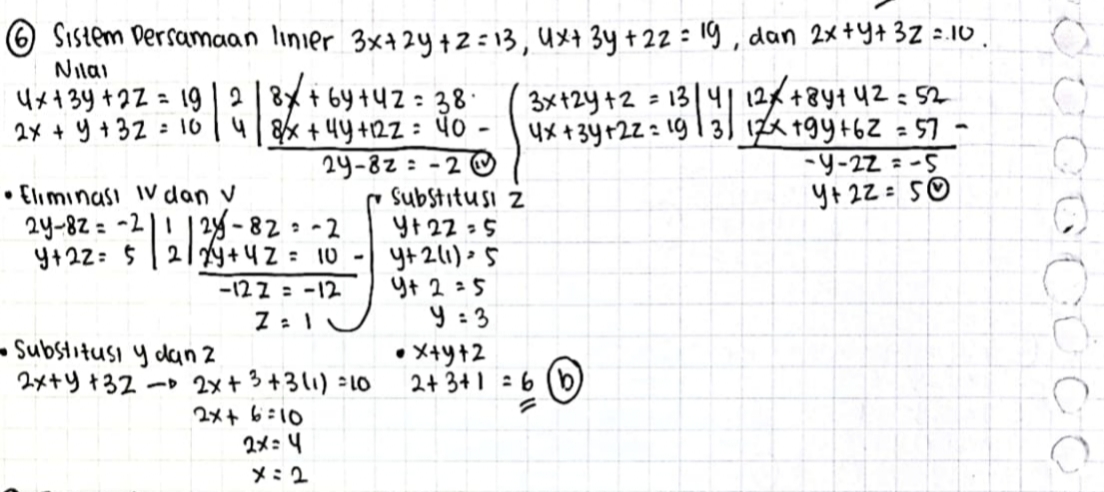 ⑥ Sistem Persamaan linier 3x+2y+z=13, 4x+3y+2z=19, dan 2x+y+3z=10.
Nilai
4x+3y+2z = 19 | 2 | 8x+6y+4z = 38
2x+y+3z = 10 | 4 | 8x+4y+12z = 40 -
2y-8z = -2 (IV)
3x+2y+z = 13 | 4 | 12x+8y+4z = 52
4x+3y+2z = 19 | 3 | 12x+9y+6z = 57 -
-y-2z = -5
y+2z = 5 (V)
• Eliminasi IV dan V
2y-8z = -2 | 1 | 2y-8z = -2
y+2z = 5 | 2 | 2y+4z = 10 -
-12z = -12
z = 1
Substitusi z
y+2z = 5
y+2(1) = 5
y+2 = 5
y = 3
• Substitusi y dan z
2x+y+3z → 2x+3+3(1) = 10
2x+6 = 10
2x = 4
x = 2
• x+y+z
2+3+1 = 6 (b)